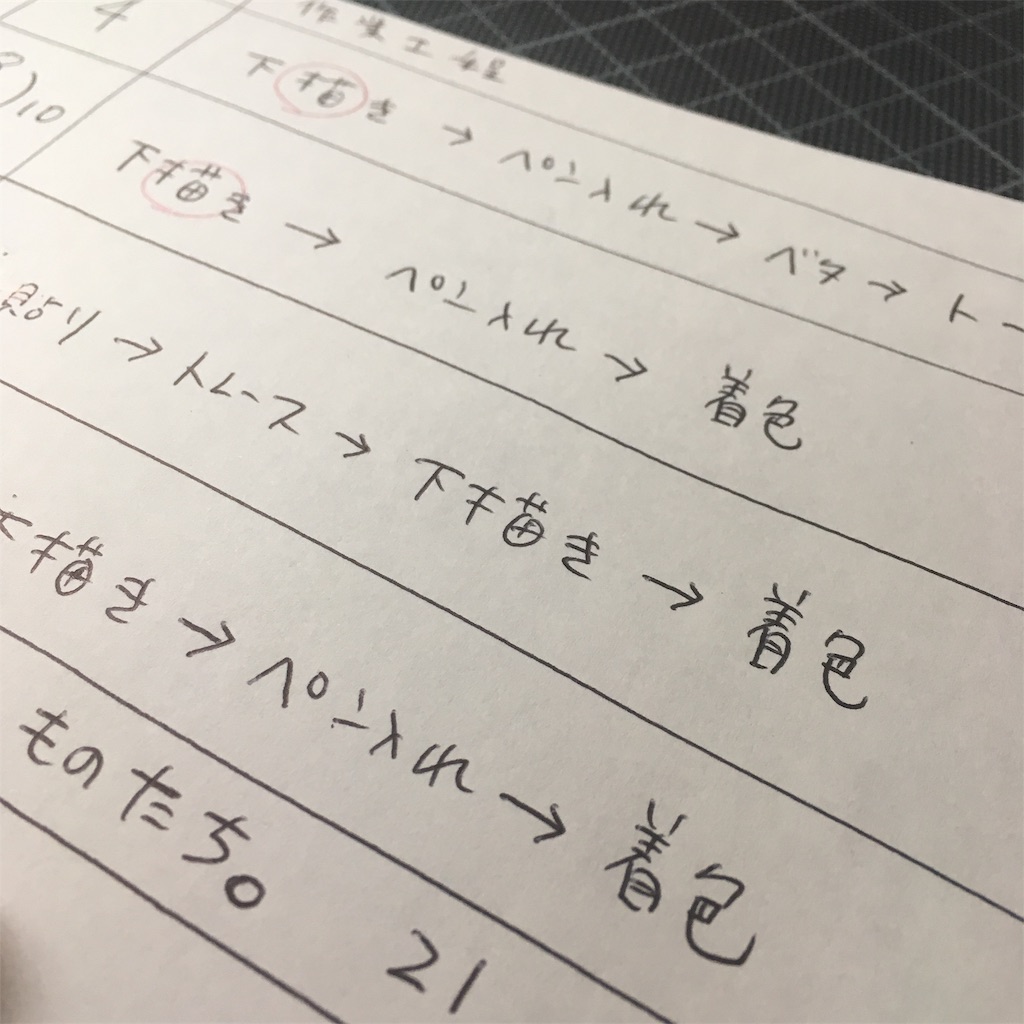 4 作業工程
下描き → ペン入れ → ベタ → トー
10 下描き → ペン入れ → 着色
貼り → トレース → 下描き → 着色
描き → ペン入れ → 着色
ものたち。 21